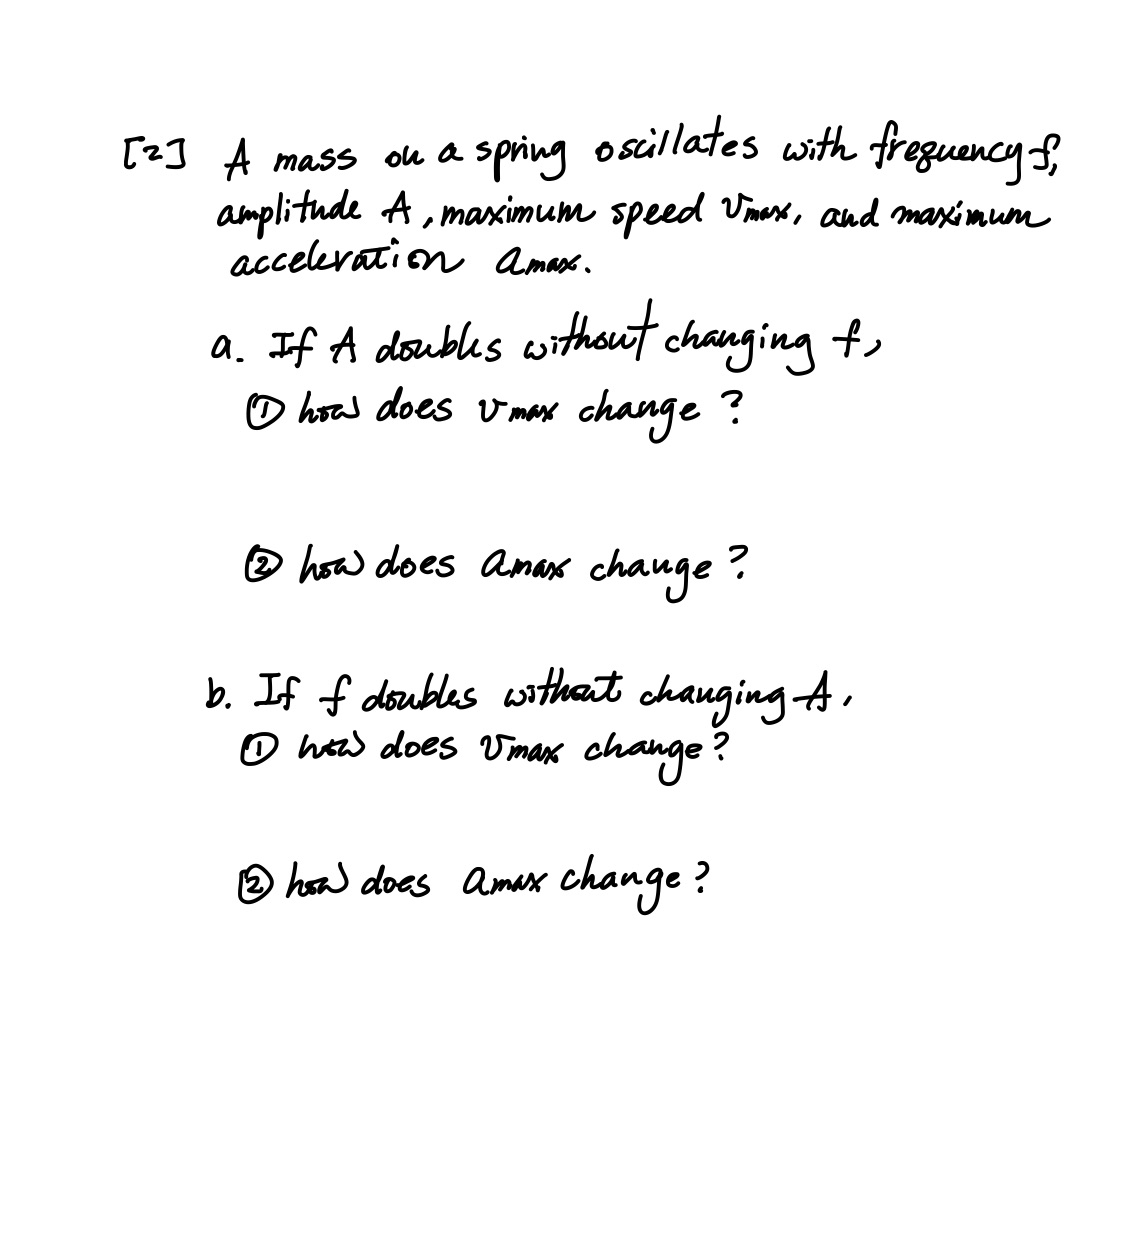 [2] A mass on a spring oscillates with frequency f,
amplitude A, maximum speed vmax, and maximum
acceleration amax.
a. If A doubles without changing f,
① how does vmax change?
② how does amax change?
b. If f doubles without changing A,
① how does vmax change?
② how does amax change?